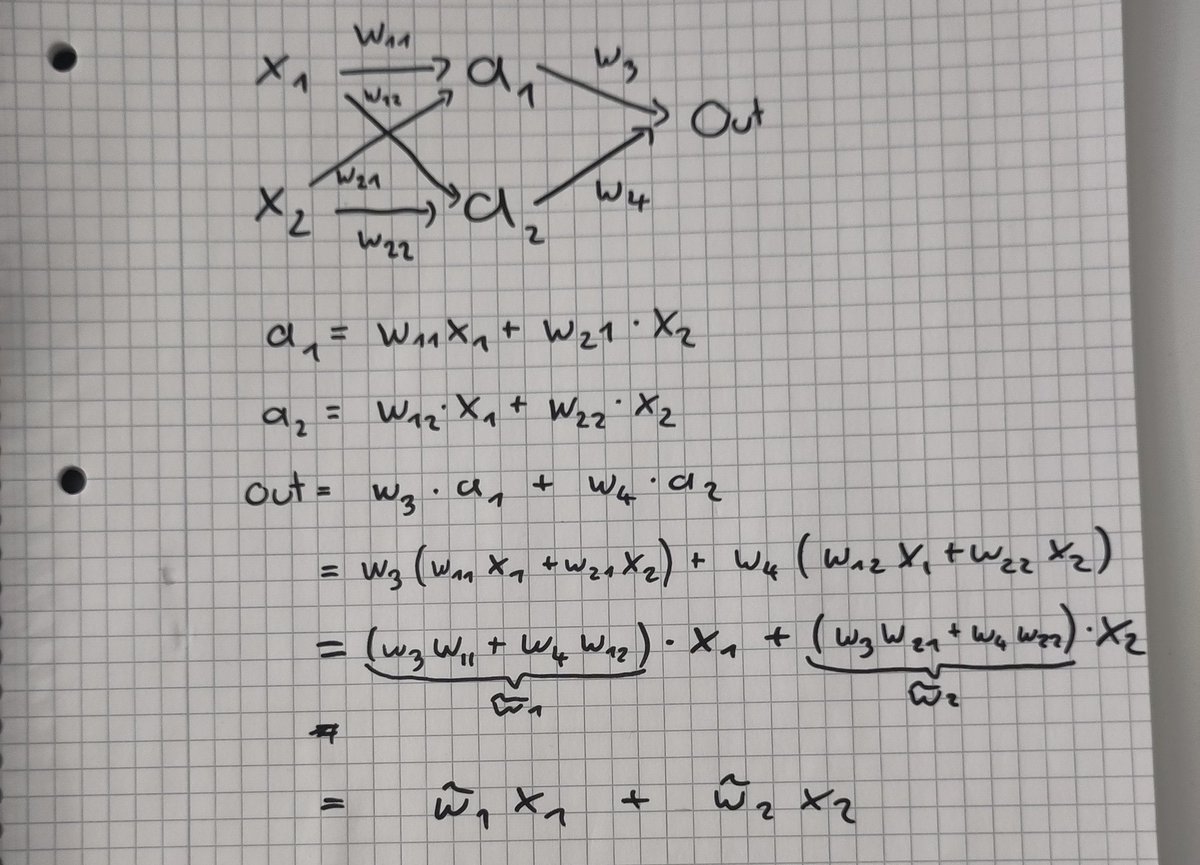 w₁₁
w₃
x₁ a₁
w₁₂ Out
w₂₁
x₂ a₂ w₄
w₂₂
a₁ = w₁₁x₁ + w₂₁ · x₂
a₂ = w₁₂ · x₁ + w₂₂ · x₂
out = w₃ · a₁ + w₄ · a₂
= w₃ (w₁₁ x₁ + w₂₁ x₂) + w₄ (w₁₂ x₁ + w₂₂ x₂)
= (w₃ w₁₁ + w₄ w₁₂) · x₁ + (w₃ w₂₁ + w₄ w₂₂) · x₂
w̃₁ w̃₂
=
= w̃₁ x₁ + w̃₂ x₂